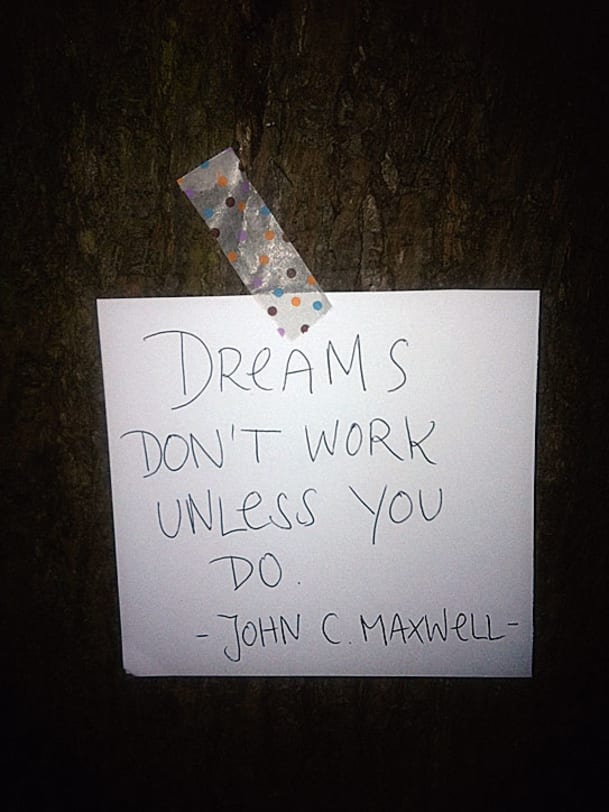 DReAMS
DON'T WORK
UNLeSS YOU
DO.
- JOHN C. MAXWeLL -